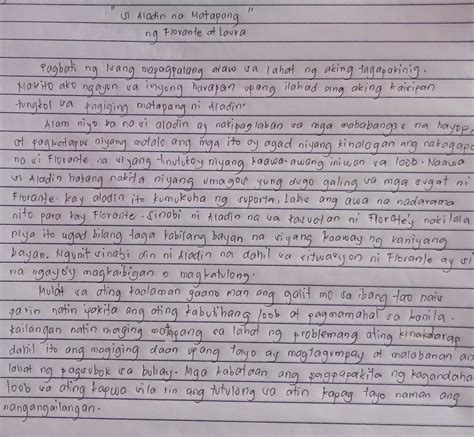 " si Aladin na Matapang "
ng Florante at Laura
Pagbati ng isang mapagpalang araw sa lahat ng aking tagapakinig.
Narito ako ngayon sa inyong harapan upang ilahad ang aking kaisipan
tungkol sa pagiging matapang ni Aladin.
Alam niyo ba na si aladin ay nakipaglaban sa mga mababangis na hayop
at pagkatapos niyang matalo ang mga ito ay agad niyang kinalagan ang nakagapos
na si Florante na siyang tinutukoy niyang kaawa-awang iniwan sa loob. Naawa
si Aladin habang nakita niyang umagos yung dugo galing sa mga sugat ni
Florante. kay aladin ito kumukuha ng suporta. Labis ang awa na nadarama
nito para kay Florante. sinabi ni Aladin na sa kasuotan ni Florate'y nakilala
niya ito agad bilang taga kabilang bayan na siyang kaaway ng kaniyang
bayan. Ngunit sinabi din ni Aladin na dahil sa sitwasyon ni Florante ay si
na ngayo'y magkaibigan o magkatulong.
Mulat sa ating kaalaman gaano man ang galit mo sa ibang tao nais
parin natin ipakita ang ating kabutihang loob at pagmamahal sa kanila.
kailangan natin maging matapang sa lahat ng problemang ating kinakaharap
dahil ito ang magiging daan upang tayo ay magtagumpay at malabanan an
lahat ng pagsubok sa buhay. Mga kabataan ang pagpapakita ng kagandaha
loob sa ating kapwa sila rin ang tutulong sa atin kapag tayo naman ang
nangangailangan.